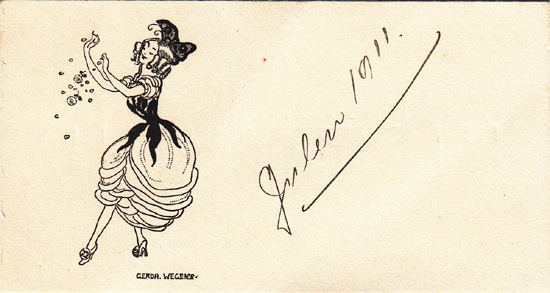 Julen 1911.
GERDA. WEGENER-